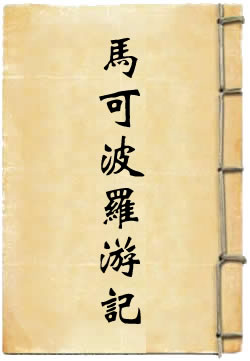 馬可波羅游記